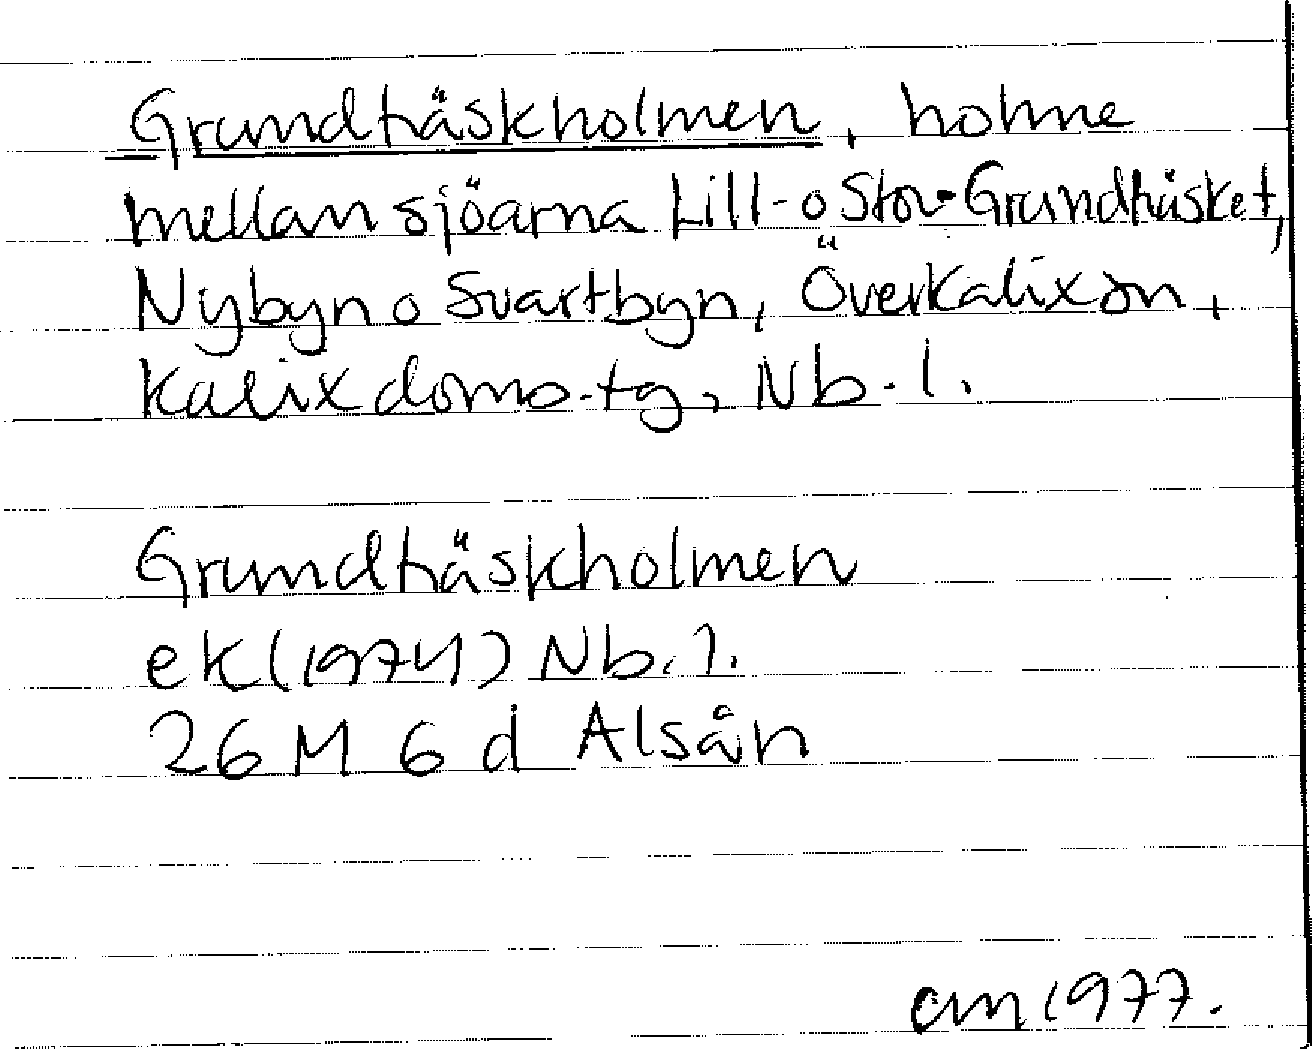 Grundträskholmen, holme
mellan sjöarna Lill- o Stor-Grundträsket,
Nybyn o Svartbyn, Överkalix sn,
Kalix doms.tg, Nb. l.
Grundträskholmen
ek (1974) Nb. l.
26 M 6 d Alsån
am 1977.